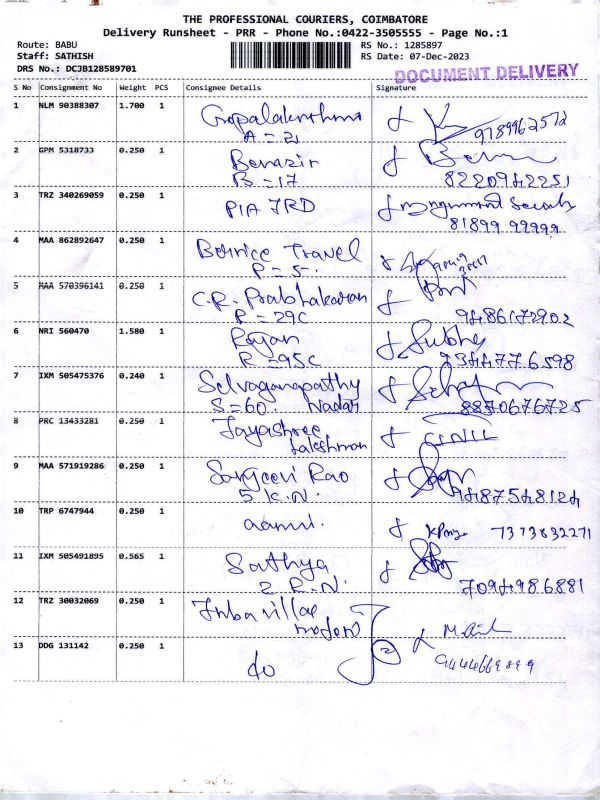 THE PROFESSIONAL COURIERS, COIMBATORE
Delivery Runsheet - PRR - Phone No.:0422-3505555 - Page No.:1
Route: BABU
Staff: SATHISH
DRS No.: DCJB128589701
RS No.: 1285897
RS Date: 07-Dec-2023
DOCUMENT DELIVERY
S No Consignment No Weight PCS Consignee Details Signature
1 NLM 90388307 1.700 1
A = 21
2 GPM 5318733 0.250 1 Benazir
B = 17 8220942251
3 TRZ 340269059 0.250 1 PIA JRD
81899 99999
4 MAA 862892647 0.250 1 Bernice Travel
P = 5.
5 MAA 570396141 0.250 1 C.R. Prabhakaran
P = 29C 9486172902
6 NRI 560470 1.580 1 Rajan Subha
R = 95C 7344776598
7 IXM 505475376 0.240 1 Selvaganapathy
S = 60. Nadar 8870676725
8 PRC 13433281 0.250 1 Jayashree
Lakshman
9 MAA 571919286 0.250 1 Sanjeevi Rao
5 K.N. 9487548124
10 TRP 6747944 0.250 1 7373832271
11 IXM 505491895 0.565 1 Sathya
2 R.N. 7094986881
12 TRZ 30032069 0.250 1
13 DDG 131142 0.250 1 do 9444669899